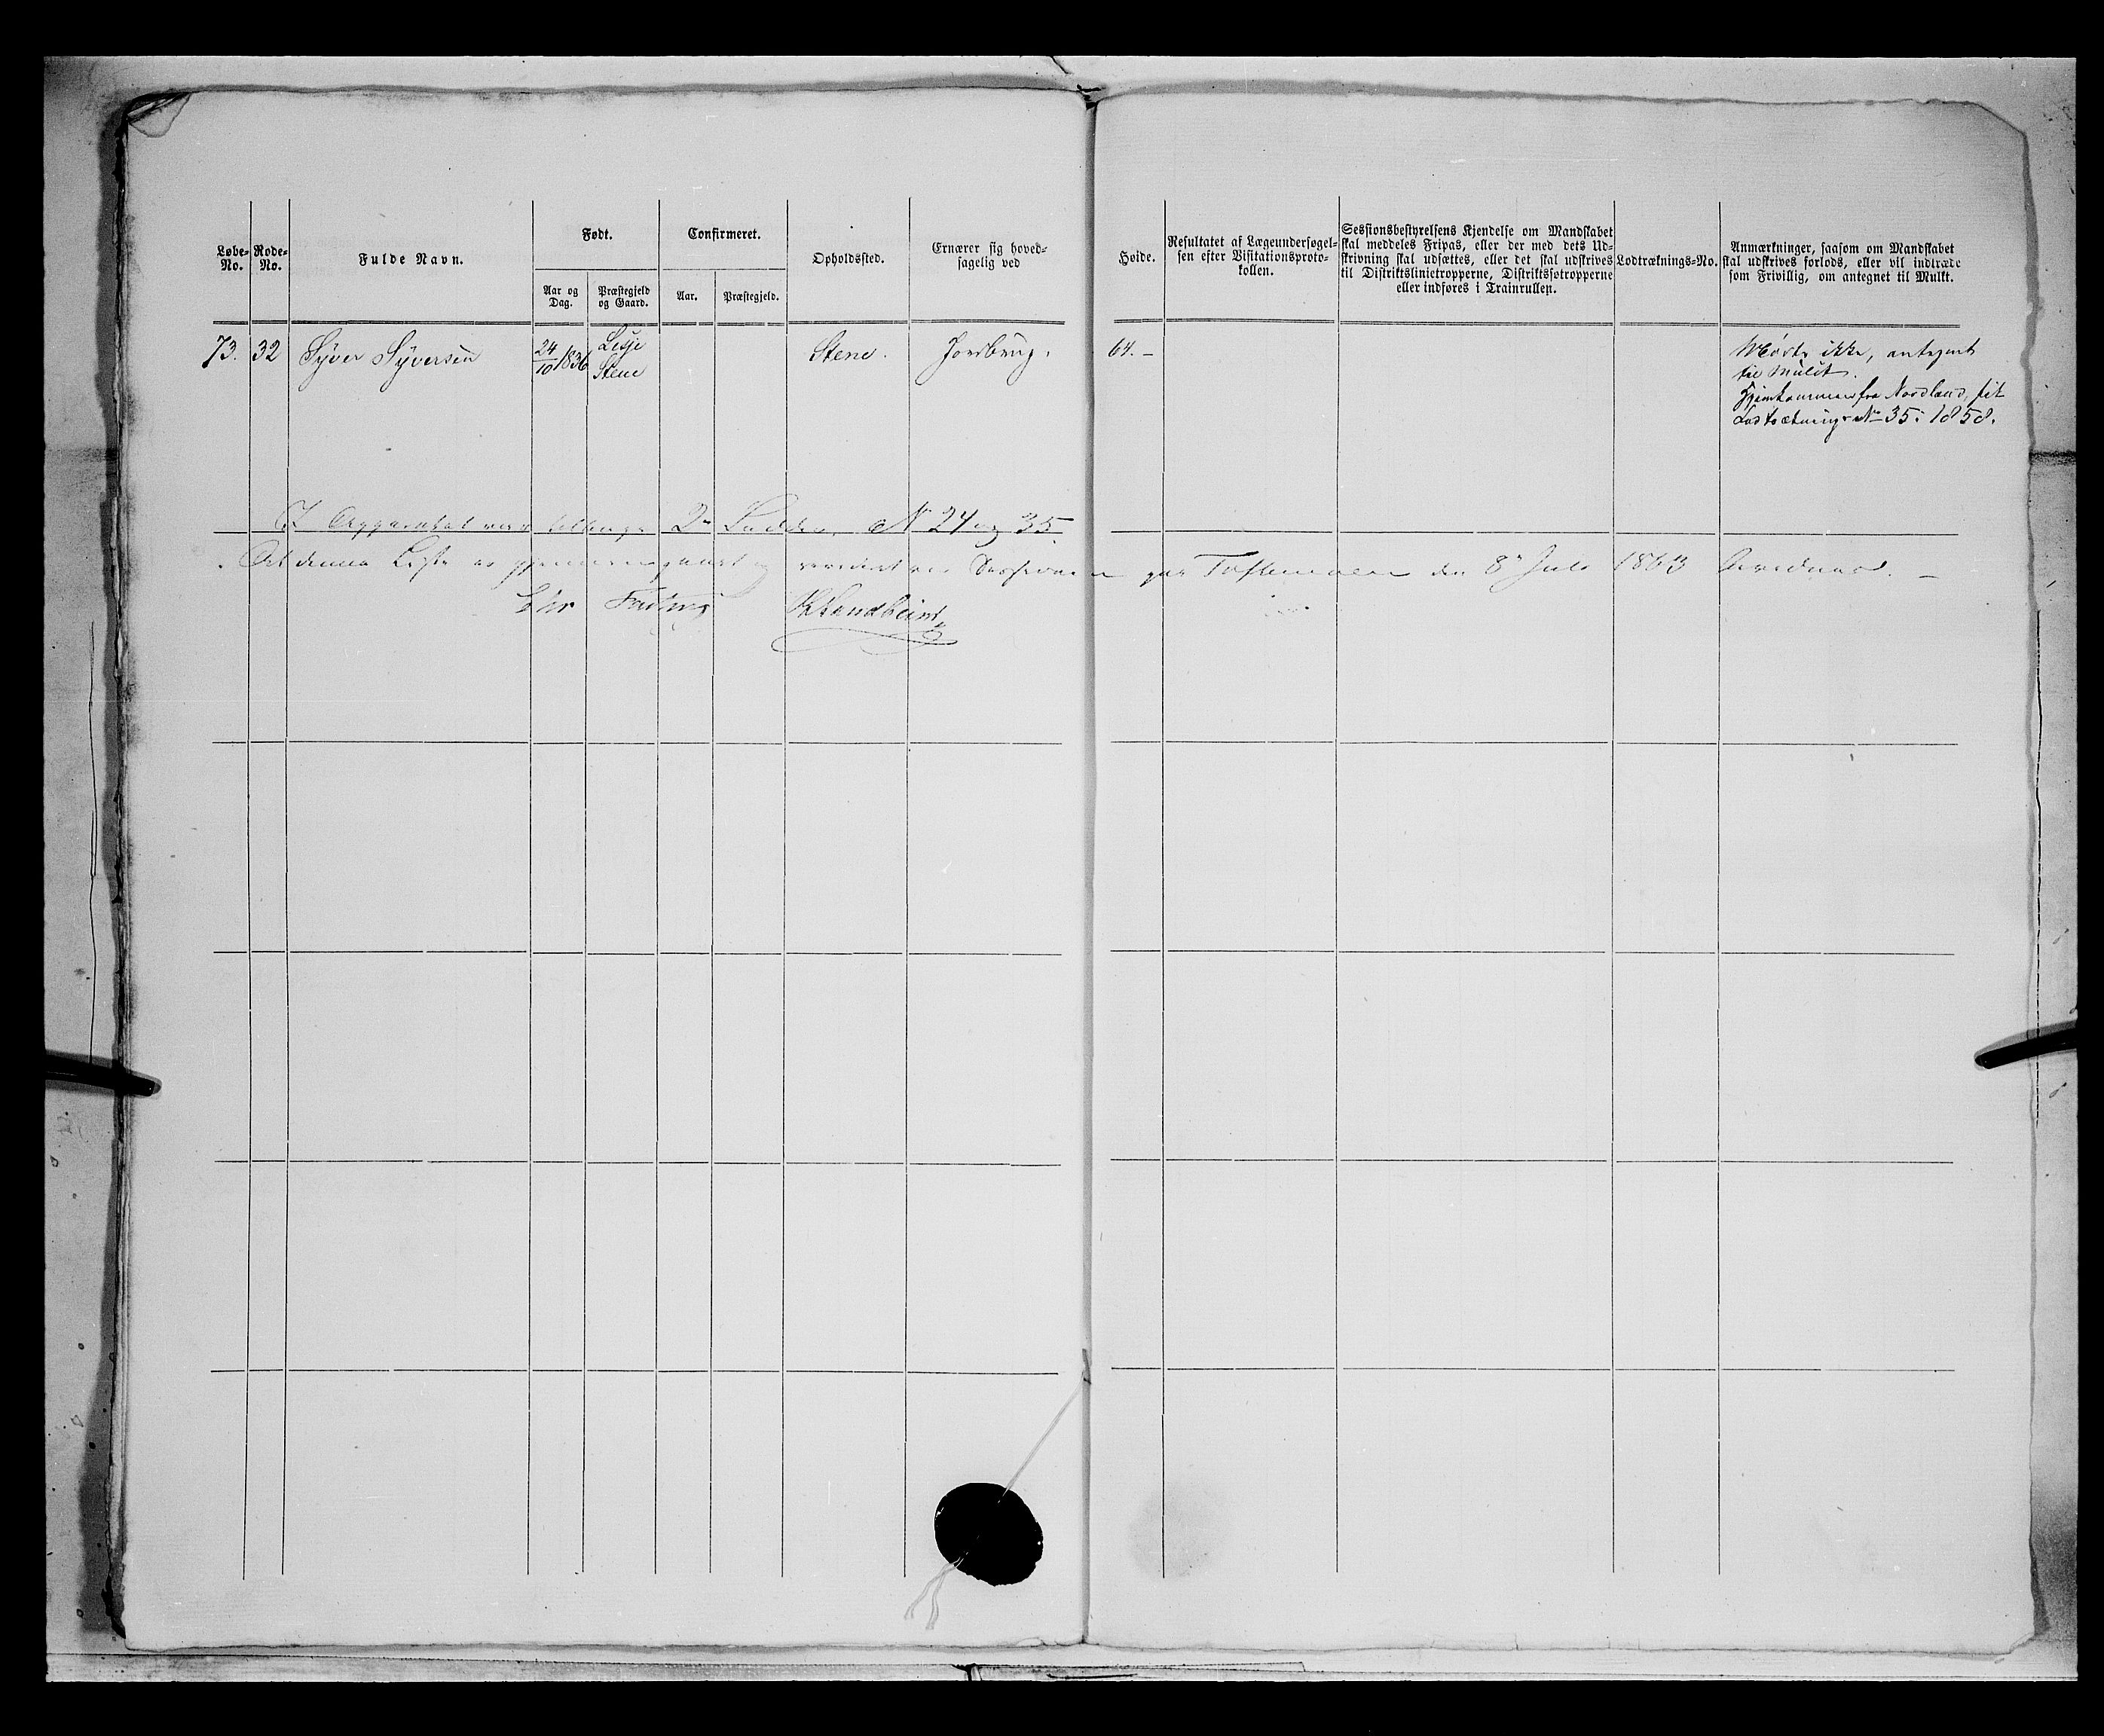 Løbe-No.
Rode-No.
Fulde Navn.
Født.
Aar og Dag.
Præstegjeld og Gaard.
Confirmeret.
Aar.
Præstegjeld.
Opholdssted.
Ernærer sig hoved-
sagelig ved
Høide.
Resultatet af Lægeundersøgel-
sen efter Visitationsproto-
kollen.
Sessionsbestyrelsens Kjendelse om Mandskabet
skal meddeles Fripas, eller der med dets Ud-
skrivning skal udsættes, eller det skal udskrives
til Distriktslinietropperne, Distriktsfotropperne
eller indføres i Trainrullen.
Lodtræknings-No.
Anmærkninger, saasom om Mandskabet
skal udskrives forlods, eller vil indtræde
som Frivillig, om antegnet til Mulkt.
73. 32 Syver Syversen 24/10 1836 Lesje Stene Stene. Jordbrug. 64. –
Mødte ikke, antegnet
til Mulct.
Hjemkommen fra Nordland, fik
Lodtrækning No 35 1858.
2 Lodder, N 24 og 35
At denne Liste er gjennemgaaet og revideret ved Sessionen paa Toftemoen den 8de Juli 1863 bevidnes. –
K Sandbeim